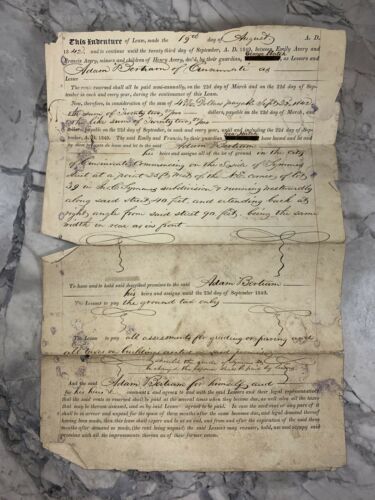 This Indenture of Lease, made the 19th day of August A. D.
1842, and to continue until the twenty third day of September, A. D. 1849, between Emily Avery and
Francis Avery, minors and children of Henry Avery, dec'd, by their guardian, as Lessors and
Adam Bertram of Cincinnati as
Lessee
The rents reserved shall all be paid semi-annually, on the 23d day of March and on the 23d day of Sep-
tember in each and every year, during the continuance of this Lease.
Now, therefore, in consideration of the sum of Dollars payable Sept 23, 1842
the sum of Twenty two dollars, payable on the 23d day of March, and
the like sum of Twenty two
dollars, payable on the 23d day of September, in each and every year, until and including the 23d day of Sep-
tember A. D. 1849. The said Emily and Francis, by their guardian
by these presents do lease and let to the said Adam Bertram
his heirs and assigns all of its ground in the city
of Cincinnati commencing on the side of
street at a point 25 ft W of the N.E. corner of lot
39 in subdivision & running westwardly
along said street 40 feet, and extending back at
right angles from said street 90 feet, being the same
width in rear as in front
To have and to hold said described premises to the said Adam Bertram
his heirs and assigns until the 23d day of September 1849.
The Lessors to pay the ground tax only
The Lessee to pay all assessments for grading or paving and
all taxes on buildings
And the said Adam Bertram for himself and
for his heirs covenants and agrees to and with the said Lessors and their legal representatives
that the said rents so reserved shall be paid at the several times when they become due, as well also all the taxes
that may be thereon assessed, and as by said Lessee agreed to be paid. In case the said rent or any part of
it shall be in arrear and unpaid for the space of three months after the same becomes due, and legal demand thereof
having been made, then this lease shall expire and be at an end, and from and after the expiration of the said three
months after so made, (the rent being unpaid) the said Lessors may reenter, hold, use and occupy said
premises with all the improvements thereon as of their former estate.